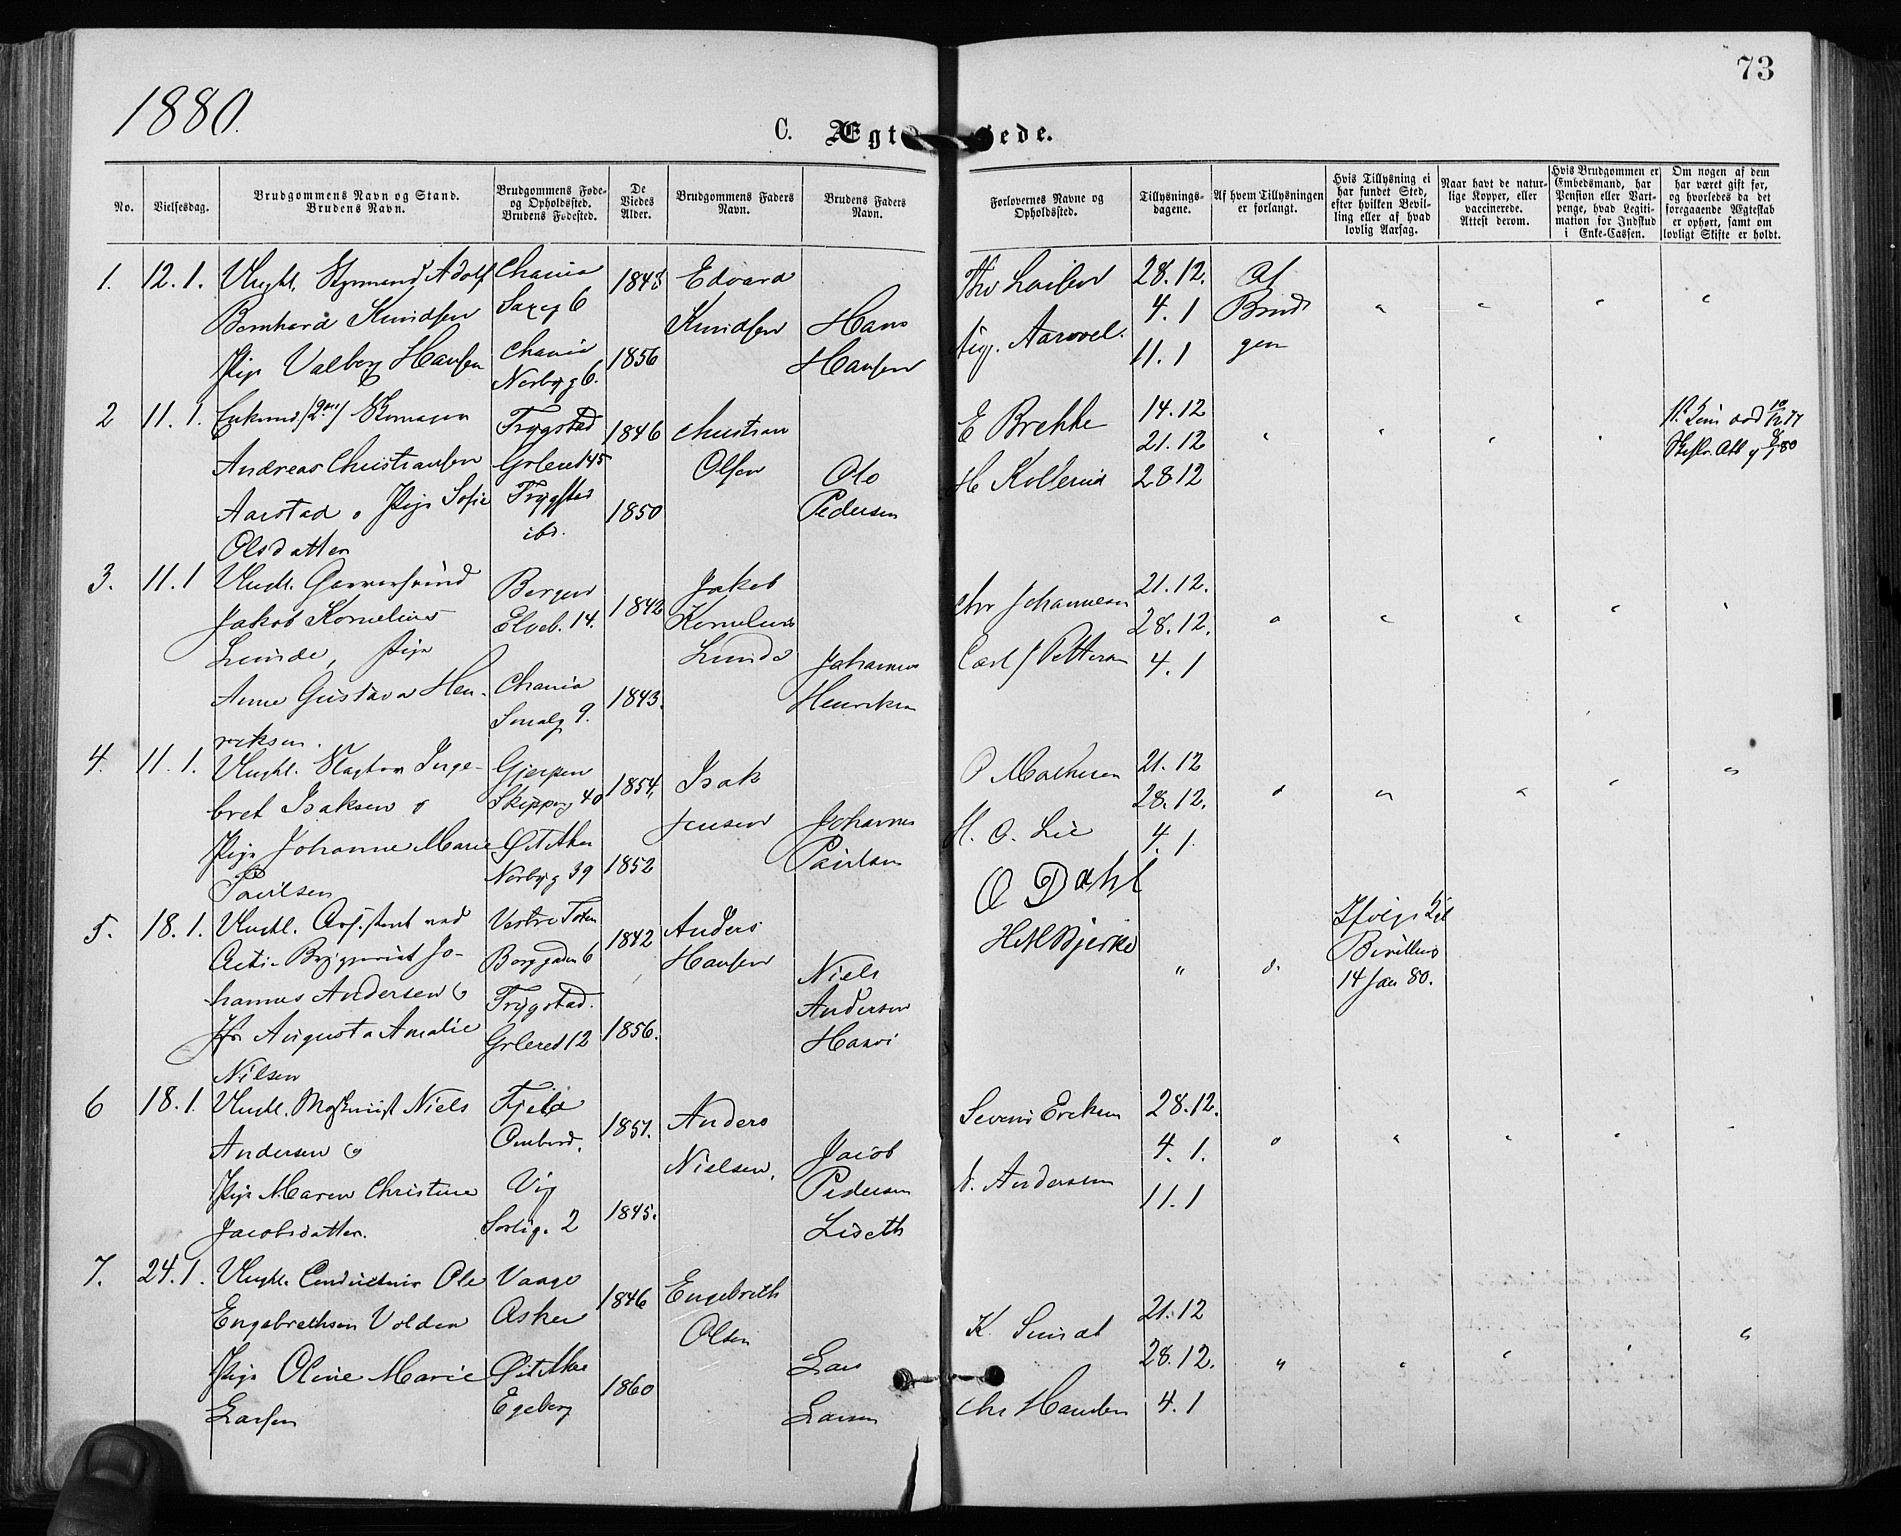 1880.
73
C. Ægt ede.
No.
Vielsesdag.
Brudgommens Navn og Stand.
Brudens Navn.
Brudgommens Føde-
og Opholdssted.
Brudens Fødested.
De
Viedes
Alder.
Brudgommens Faders
Navn.
Brudens Faders
Navn.
Forlovernes Navne og
Opholdssted.
Tillysnings-
dagene.
Af hvem Tillysningen
er forlangt.
Hvis Tillysning ei
har fundet Sted,
efter hvilken Bevil-
ling eller af hvad
lovlig Aarsag.
Naar havt de natur-
lige Kopper, eller
vaccinerede.
Attest derom.
Hvis Brudgommen er
Embedsmand, har
Pension eller Vart-
penge, hvad Legiti-
mation for Indskud
i Enke-Cassen.
Om nogen af dem
har været gift før,
og hvorledes da det
foregaaende Ægteskab
er ophørt, samt om
lovligt Skifte er holdt.
1. 12.1. Ungkl. Adolf Chania 1848 Edvard 28.12. Af
Bernhard Knudsen 6 Knudsen Hans 4.1 Brud
Pige Valborg Hansen Chania 1856 Hansen Aug. 11.1 gen
Norbyg 6.
2 11.1. Enkemd Trygstad 1846 Christian E Brekke 14.12
Andreas Christiansen Grleret 45 Olsen Ole 21.12
Aarstad o Pige Sofie 1850 Pedersen H Kollerud 28 12
Olsdatter ibd.
3. 11.1 Ungkl. Garversvend Bergen 1842 Jakob Chr Johannesen 21.12.
Jakob Kornelius Elveb. 14. Kornelius 28.12.
Lunde, Pige Lunde Johannes Carl J Petterson 4.1
Anne Gustava Hen- Chania 1843. Henriksen
riksen. 9.
4. 11.1. Ungkl. Inge- Gjerpen 1854. Isak O Mathesen 21.12
bret Isaksen o Skipperg 40 Jensen Johannes 28.12.
Pige Johanne Marie Ø Aker 1852 Paulsen H. O. Lie 4.1.
Paulsen Norbyg 39 O Dahl
5. 18.1. Ungkl. Assistent ved Vestre Toten 1842 Anders Ifølge
Acti- Bryggeriet Jo- Borggaden 6 Hansen Niels H M Bjerke
hannes Andersen o Trygstad. Andersen 14 Jan 80.
Jfr Augusta Amalie Grleret 12 1856.
Nilsen
6 18.1. Ungkl. Niels Fjeld 1851. Anders 28.12.
Andersen o Ombord. Nielsen. Jacob 4.1.
Pige Maren Christine Vig 1845. Pedersen N. Andersen 11.1
Jacobsdatter. 2 Lideth
7. 24.1. Ungkl. Conducteur Ole Vaage 1846 Engebreth 21.12
Engebrethsen Volden Asker Olsen K. 28.12.
Pige Oline Marie Ø Aker 1860 Lars
Larsen Egeberg Larsen Chr 4.1